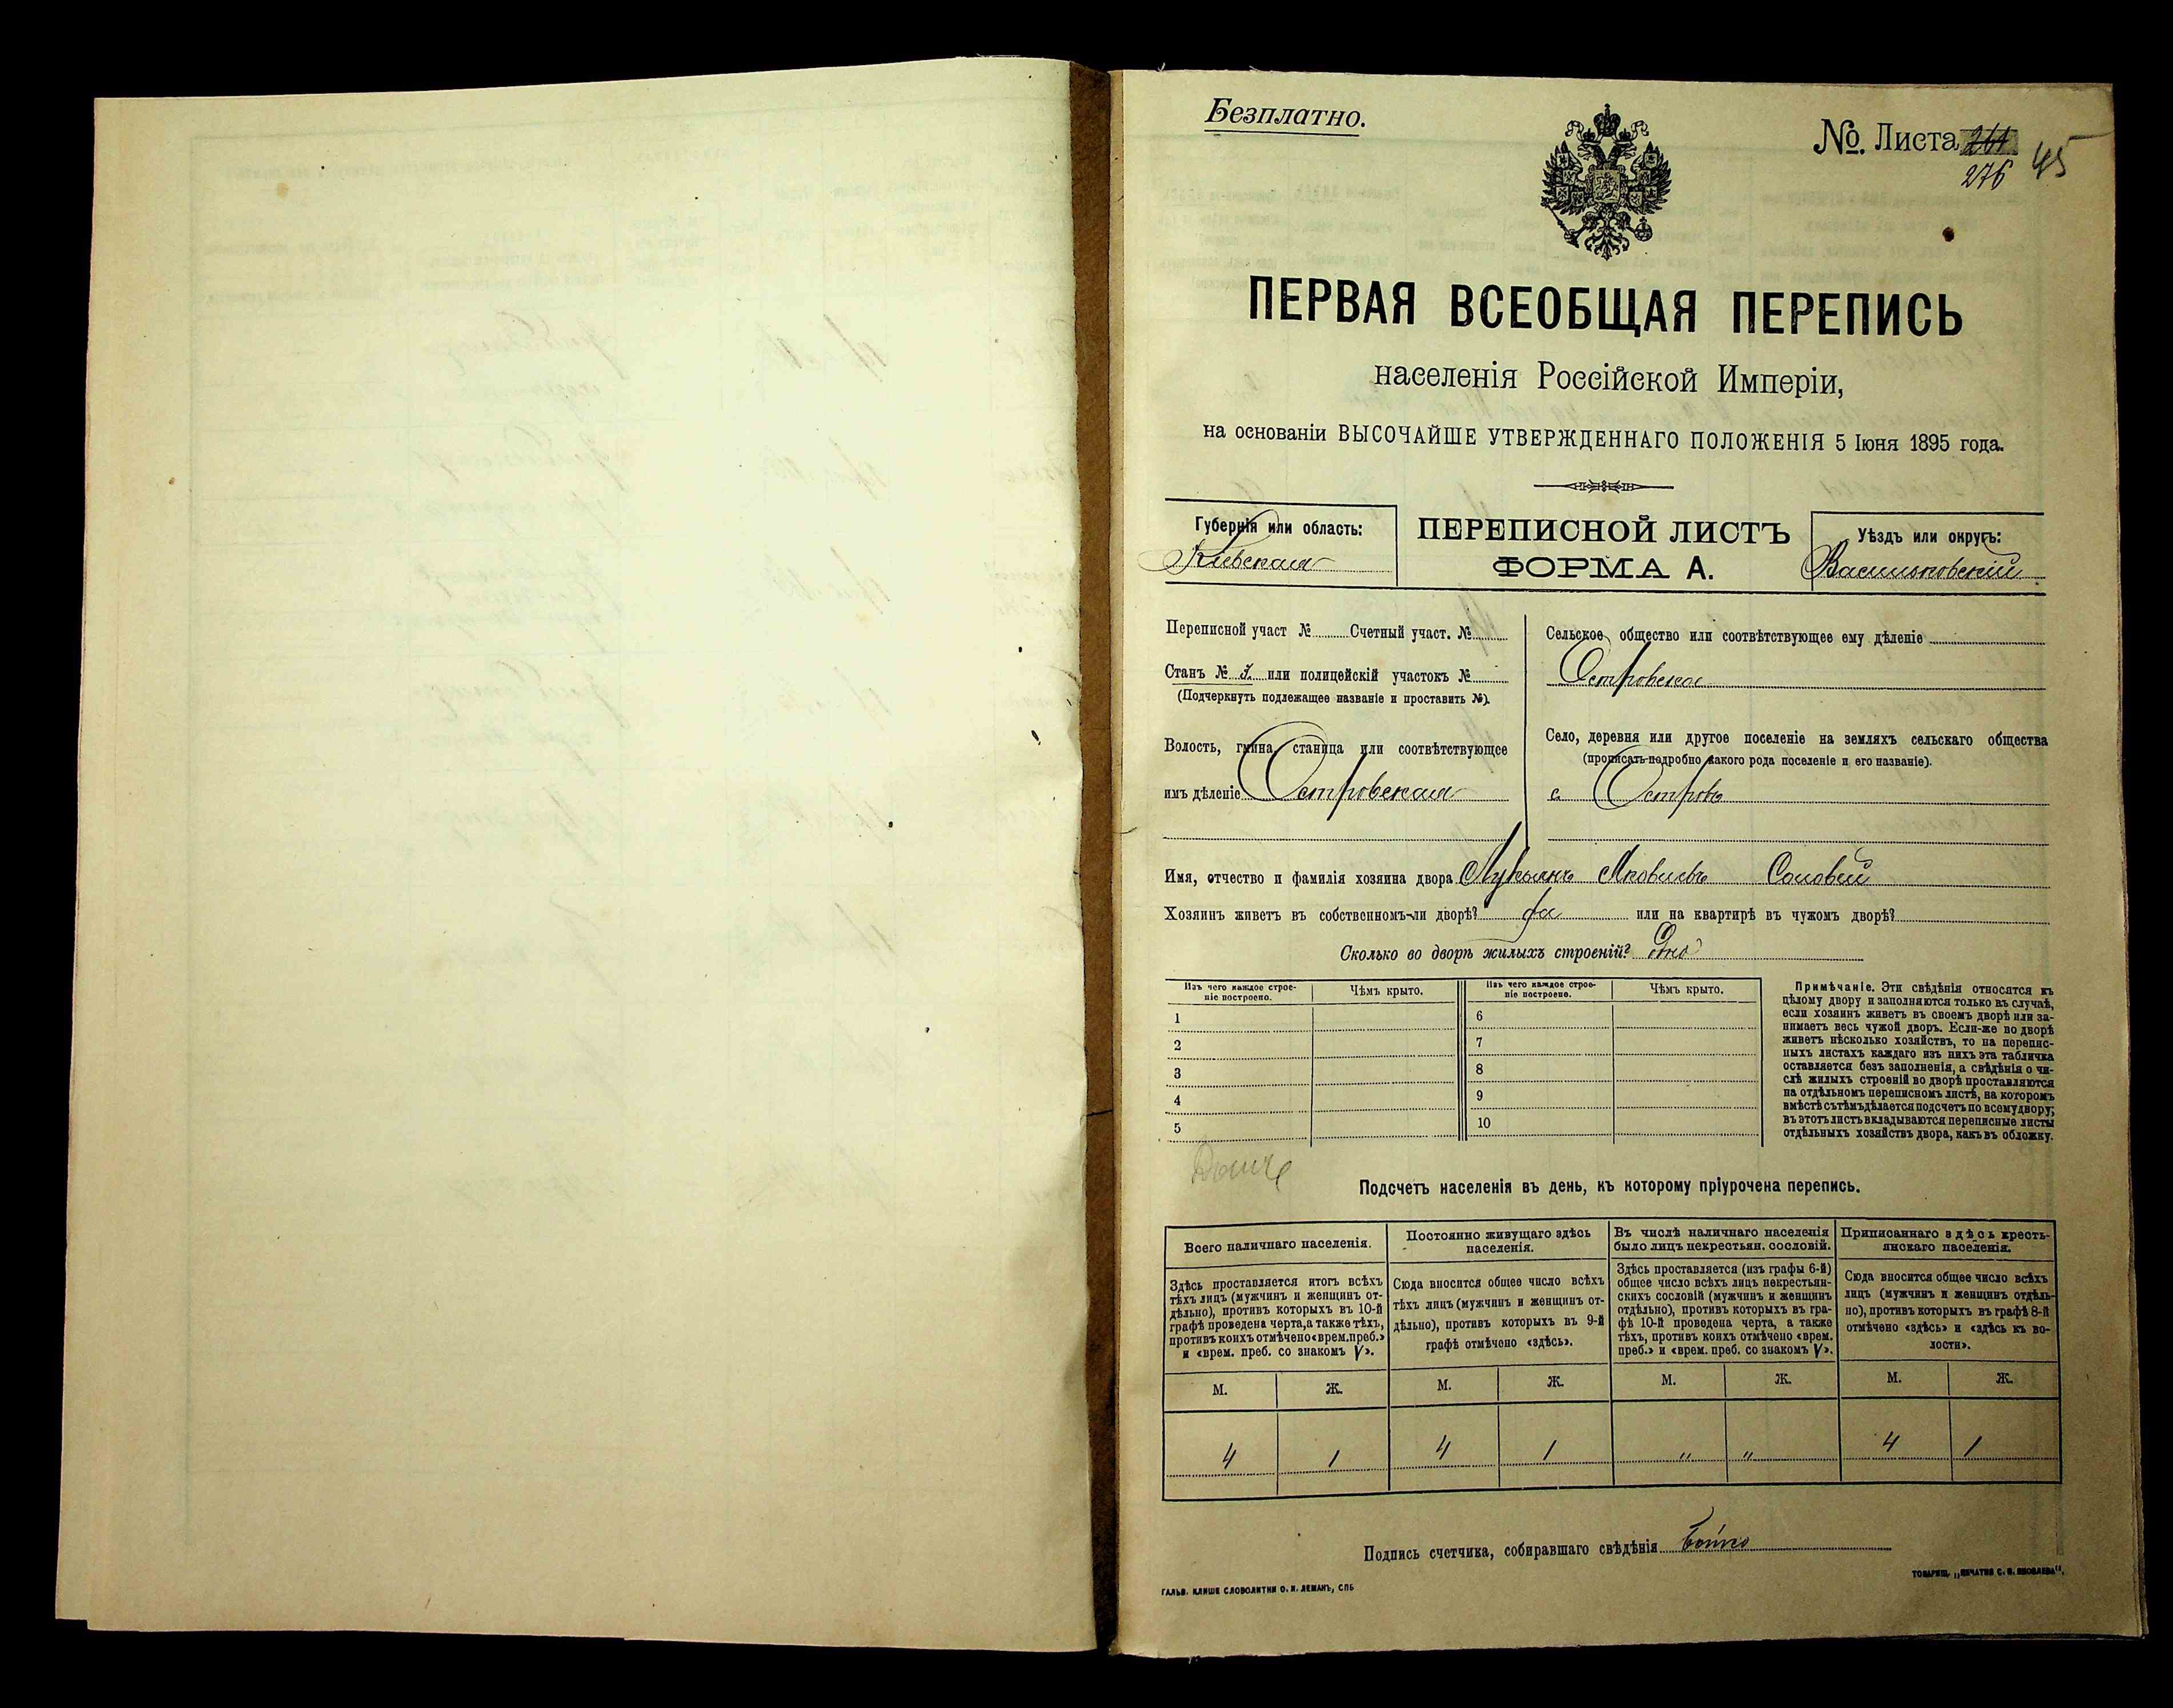 Безплатно.
№. Листа 261
276 45
ПЕРВАЯ ВСЕОБЩАЯ ПЕРЕПИСЬ
населенія Россійской Имперіи,
на основаніи ВЫСОЧАЙШЕ УТВЕРЖДЕННАГО ПОЛОЖЕНІЯ 5 Іюня 1895 года.
Губернія или область:
Кіевская
ПЕРЕПИСНОЙ ЛИСТЪ
ФОРМА А.
Уѣздъ или округъ:
Васильковскій
Переписной участ № Счетный участ. №
Станъ № 3. или полицейскій участокъ №
(Подчеркнуть подлежащее названіе и проставить №).
Волость, гмина, станица или соотвѣтствующее
имъ дѣленіе Островская
Сельское общество или соотвѣтствующее ему дѣленіе
Островское
Село, деревня или другое поселеніе на земляхъ сельскаго общества
(прописать подробно какого рода поселеніе и его названіе).
с. Островъ
Имя, отчество и фамилія хозяина двора Лукьянъ Яковлевъ Соловей
Хозяинъ живетъ въ собственномъ-ли дворѣ? да или на квартирѣ въ чужомъ дворѣ?
Сколько во дворѣ жилыхъ строеній? Одно
Изъ чего каждое строе-
ніе построено.
Чѣмъ крыто.
1
2
3
4
5
Изъ чего каждое строе-
ніе построено.
Чѣмъ крыто.
6
7
8
9
10
Примѣчаніе. Эти свѣдѣнія относятся къ
цѣлому двору и заполняются только въ случаѣ,
если хозяинъ живетъ въ своемъ дворѣ или за-
нимаетъ весь чужой дворъ. Если-же во дворѣ
живетъ нѣсколько хозяйствъ, то на перепис-
ныхъ листахъ каждаго изъ нихъ эта табличка
оставляется безъ заполненія, а свѣдѣнія о чи-
слѣ жилыхъ строеній во дворѣ проставляются
на отдѣльномъ переписномъ листѣ, на которомъ
вмѣстѣ съ тѣмъ дѣлается подсчетъ по всему двору;
въ этотъ листъ вкладываются переписные листы
отдѣльныхъ хозяйствъ двора, какъ въ обложку.
Подсчетъ населенія въ день, къ которому пріурочена перепись.
Всего наличнаго населенія.
Здѣсь проставляется итогъ всѣхъ
тѣхъ лицъ (мужчинъ и женщинъ от-
дѣльно), противъ которыхъ въ 10-й
графѣ проведена черта, а также тѣхъ,
противъ коихъ отмѣчено «врем. преб.»
и «врем. преб. со знакомъ V».
М. Ж.
4 1
Постоянно живущаго здѣсь
населенія.
Сюда вносится общее число всѣхъ
тѣхъ лицъ (мужчинъ и женщинъ от-
дѣльно), противъ которыхъ въ 9-й
графѣ отмѣчено «здѣсь».
М. Ж.
4 1
Въ числѣ наличнаго населенія
было лицъ некрестьян. сословій.
Здѣсь проставляется (изъ графы 6-й)
общее число всѣхъ лицъ некрестьян-
скихъ сословій (мужчинъ и женщинъ
отдѣльно), противъ которыхъ въ гра-
фѣ 10-й проведена черта, а также
тѣхъ, противъ коихъ отмѣчено «врем.
преб.» и «врем. преб. со знакомъ V».
М. Ж.
" "
Приписаннаго здѣсь кресть-
янскаго населенія.
Сюда вносится общее число всѣхъ
лицъ (мужчинъ и женщинъ отдѣль-
но), противъ которыхъ въ графѣ 8-й
отмѣчено «здѣсь» и «здѣсь къ во-
лости».
М. Ж.
4 1
Подпись счетчика, собиравшаго свѣдѣнія Бойко
ГАЛЬВ. КЛИШЕ СЛОВОЛИТНИ О. И. ЛЕМАНЪ, СПБ
ТОВАРИЩ. „ПЕЧАТНЯ С. П. ЯКОВЛЕВА".